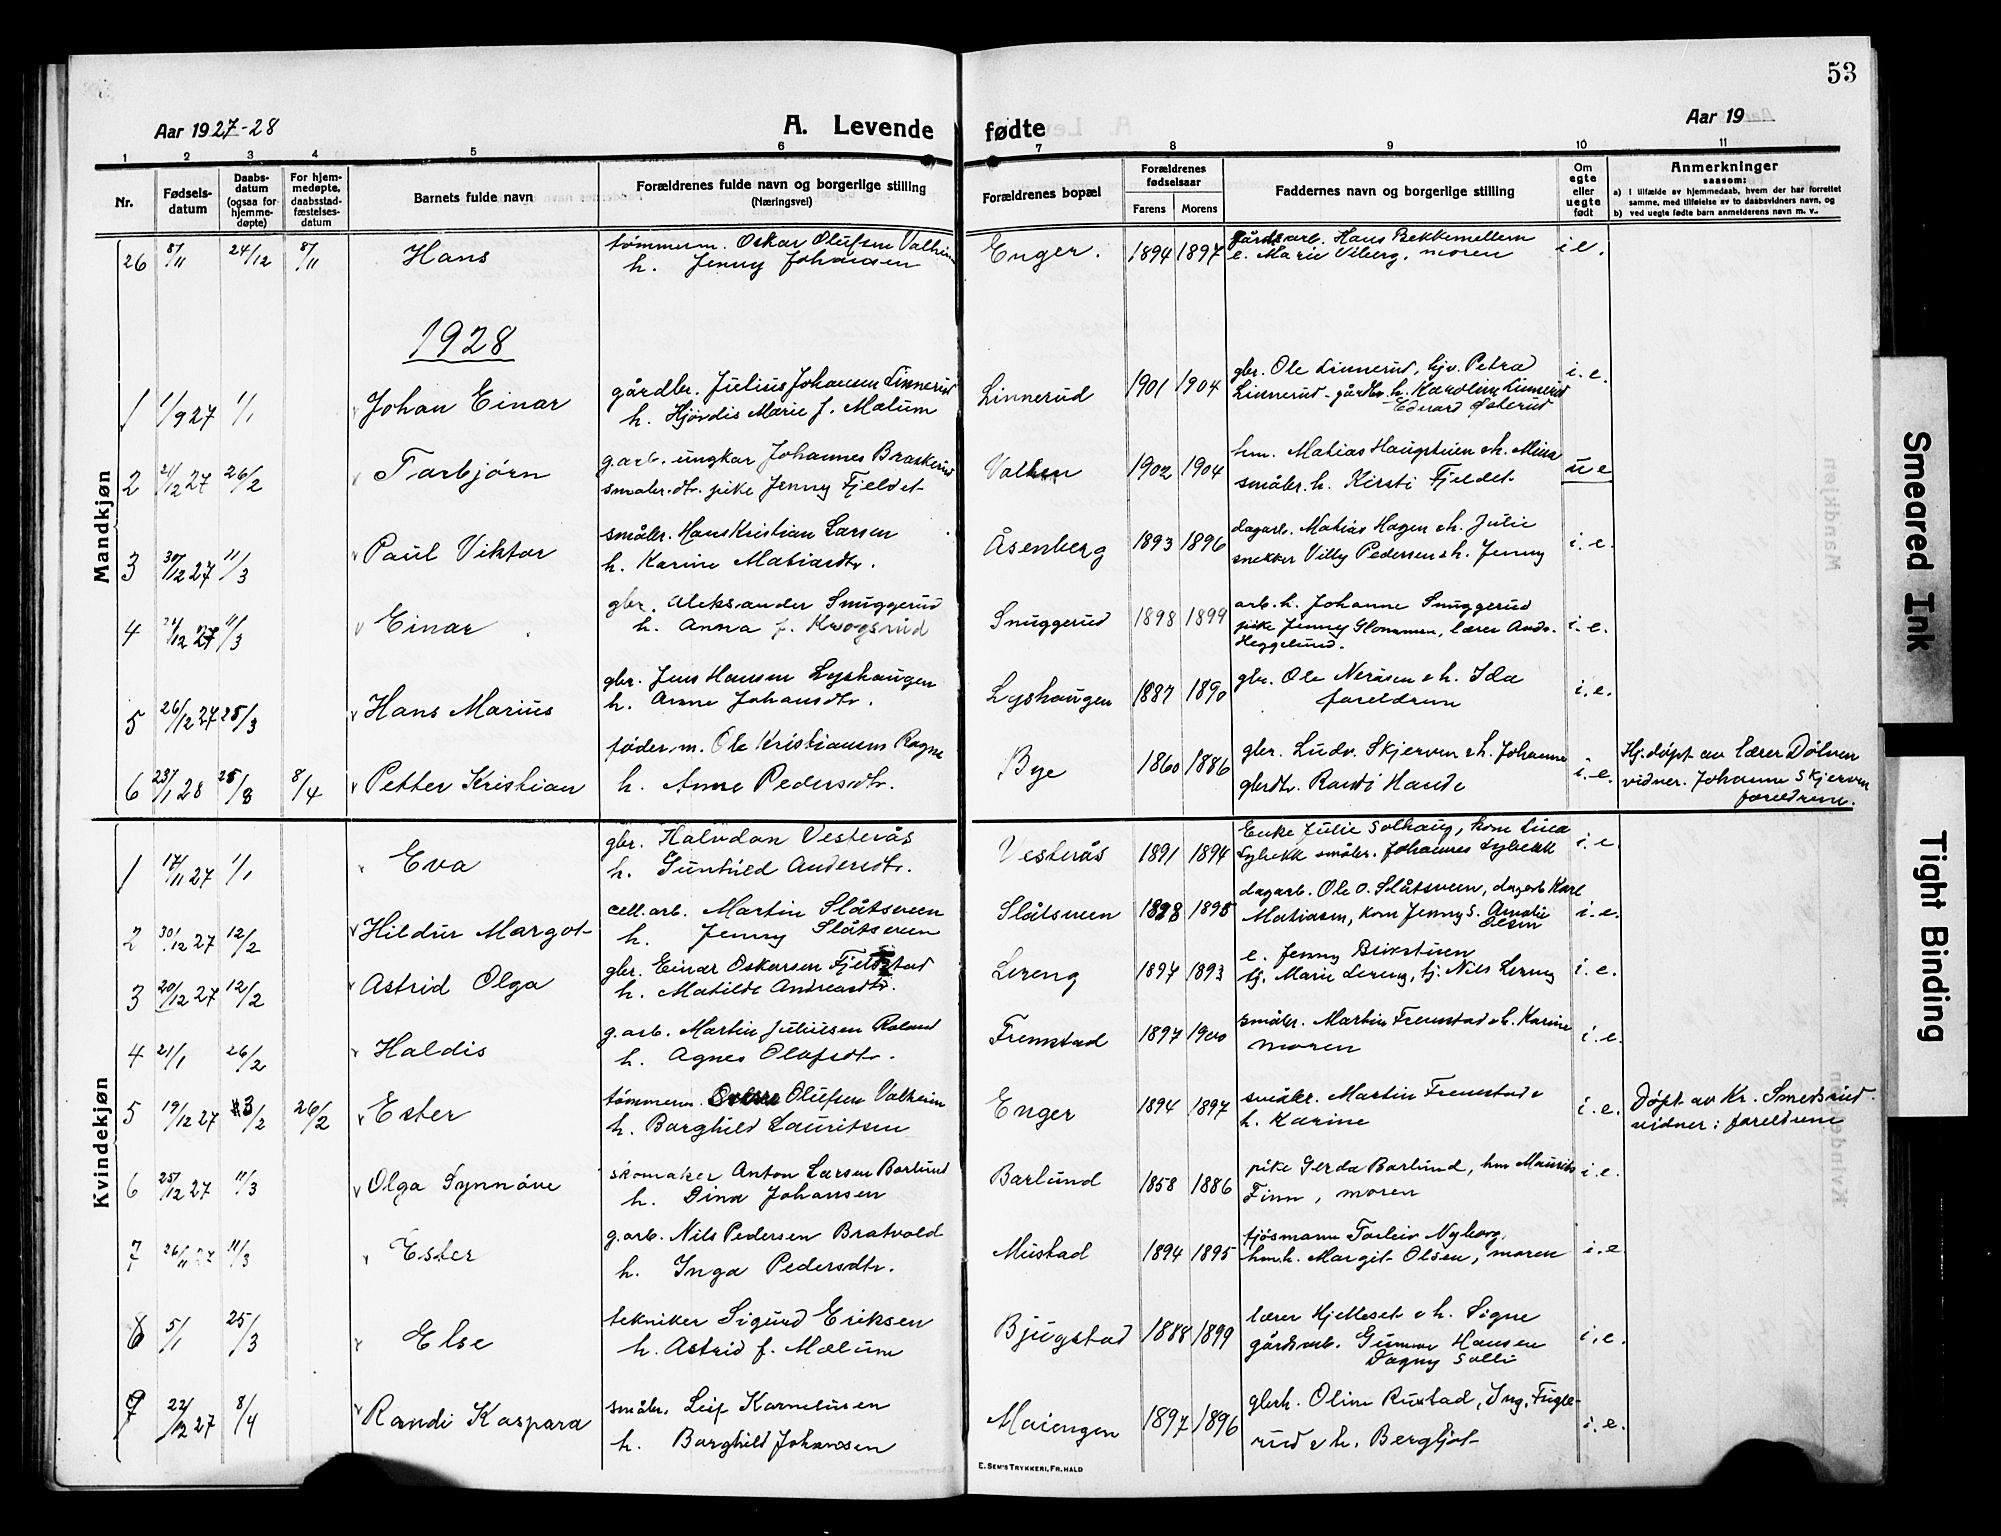 53
Aar 1927-28
A. Levende fødte
Aar 19
1 2 3 4 5 6 7 8 9 10 11
Nr. Fødsels-datum Daabs-datum (ogsaa for hjemme-døpte) For hjem-medøpte, daabsstad-fæstelses-datum Barnets fulde navn Forældrenes fulde navn og borgerlige stilling (Næringsvei) Forældrenes bopæl Forældrenes fødselsaar Farens Morens Faddernes navn og borgerlige stilling Om egte eller uegte født Anmerkninger saasom: a) i tilfælde av hjemmedaab, hvem der har forrettet samme, med tilføielse av to daabsvidners navn, og b) ved uegte fødte barn anmelderens navn m. v..
Mandkjøn
26 8/11 24/12 8/11 Hans tømmerm. Oskar Olufsen Valheim Enger. 1894 1897 gårdsarb. Hans Bekkemellem i e.
h. Jenny Johansen e. Marie Viberg, moren
1928
1 1/9 27 1/1 Johan Einar gårdbr. Julius Johansen Linnerud Linnerud 1901 1904 gbr. Ole Linnerud, Gjv. Petra i. e.
h. Hjørdis Marie f. Mælum Linnerud - gårdbr. h. Karoline Linnerud
Edvard Østerud
2 21/12 27 26/2 Tarbjørn g.arb. ungkar Johannes Braskerud Valken 1902 1904 hm. Matias Haugstuen o h. Mina u e
småbr.dtr. pike Jenny Fjeldet småbr. h. Kirsti Fjeldet
3 30/12 27 11/3 Paul Viktor småbr. Hans Kristian Larsen Åsenberg 1893 1896 dagarb. Matias Hagen o h. Julie i. e.
h. Karine Matiasdtr. snekker Villy Pedersen o h. Jenny
4 21/12 27 11/3 Einar gbr. Aleksander Snuggerud Snuggerud 1898 1899 arb. h. Johanne Snuggerud i. e.
h. Anna f. Krogsrud pike Jenny Glommen, lærer Ands.
Heggelund.
5 26/12 27 25/3 Hans Marius gbr. Jens Hansen Lyshaugen Lyshaugen 1887 1890 gbr. Ole Neråsen o h. Ida i. e.
h. Anne Johansdtr. foreldrene
6 23/1 28 25/8 8/4 Petter Kristian føder.m. Ole Kristiansen Rogne Bye 1860 1886 gbr. Ludv. Skjerven o h. Johanne i. e. Hj.døpt av lærer Dølven
h. Anne Pedersdtr. gbrdtr. Randi Hande vidner. Johanne Skjerven
foreldrene.
Kvindekjøn
1 17/11 27 1/1 Eva gbr. Halvdan Vesterås Vesterås 1891 1894 Enke Julie Solhaug, kone i. e.
h. Gunhild Andersdtr. Lybekk småbr. Johannes Lybekk
2 30/12 27 12/2 Hildur Margot cell.arb. Martin Slåtsveen Slåtsveen 1898 1895 dagarb. Ole O. Slåtsveen, dagarb Karl i. e.
h. Jenny Slåtsveen Matiasen, kone Jenny S. Amalie Olsen
3 20/12 27 12/2 Astrid Olga gbr. Einar Oskarsen Fjeldstad Lereng 1897 1893 e. Jenny i. e.
h. Matilde Andreasdtr. tj. Marie Lereng, tj. Nils Lereng
4 21/1 26/2 Haldis g.arb. Martin Juliusen Roland Fremstad 1897 1900 småbr. Martin Fremstad o h. Karine i. e.
h. Agnes Olafsdtr. moren
5 19/12 27 3/2 26/2 Ester tømmerm. Olufsen Valheim Enger 1894 1897 småbr. Martin Fremstad o i. e. Døpt av Kr. Smedsrud
h. Borghild Lauritsen h. Karine vidner: foreldrene
6 25/12 27 11/3 Olga Synnøve skomaker Anton Larsen Barlund Barlund 1858 1886 pike Gerda Barlund, hm Maurits i. e.
h. Dina Johansen Finn, moren
7 26/11 27 11/3 Ester g.arb. Nils Pedersen Bratvold Mustad 1894 1895 fjösmann Torleiv Nyborg, i. e.
h. Inga Pedersdtr. hm.h. Margit Olsen, moren
8 5/1 25/3 Else tekniker Sigurd Eriksen Bjugstad 1888 1899 lærer Hjelleset o h. Signe i. e.
h. Astrid f. Mælum gårdsarb. Gunnar Hansen
Dagny Solli
9 22/12 27 8/4 Randi Kaspara småbr. Leif Kornelusen Maiengen 1897 1896 gbrh. Oline Rustad, Ing. Fugle- i. e.
h. Borghild Johansen rud o h. Bergljot
E. SEM'S TRYKKERI, FR.HALD
Smeared Ink
Tight Binding